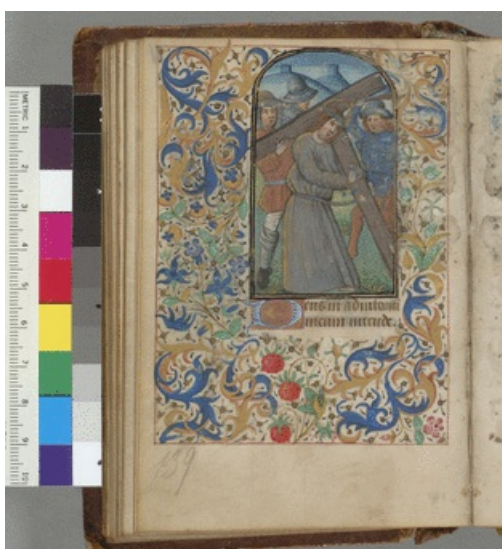 METRIC 1
2
3
4
5
6
7
8
9
10
Deus in adiutorium
meum intende.